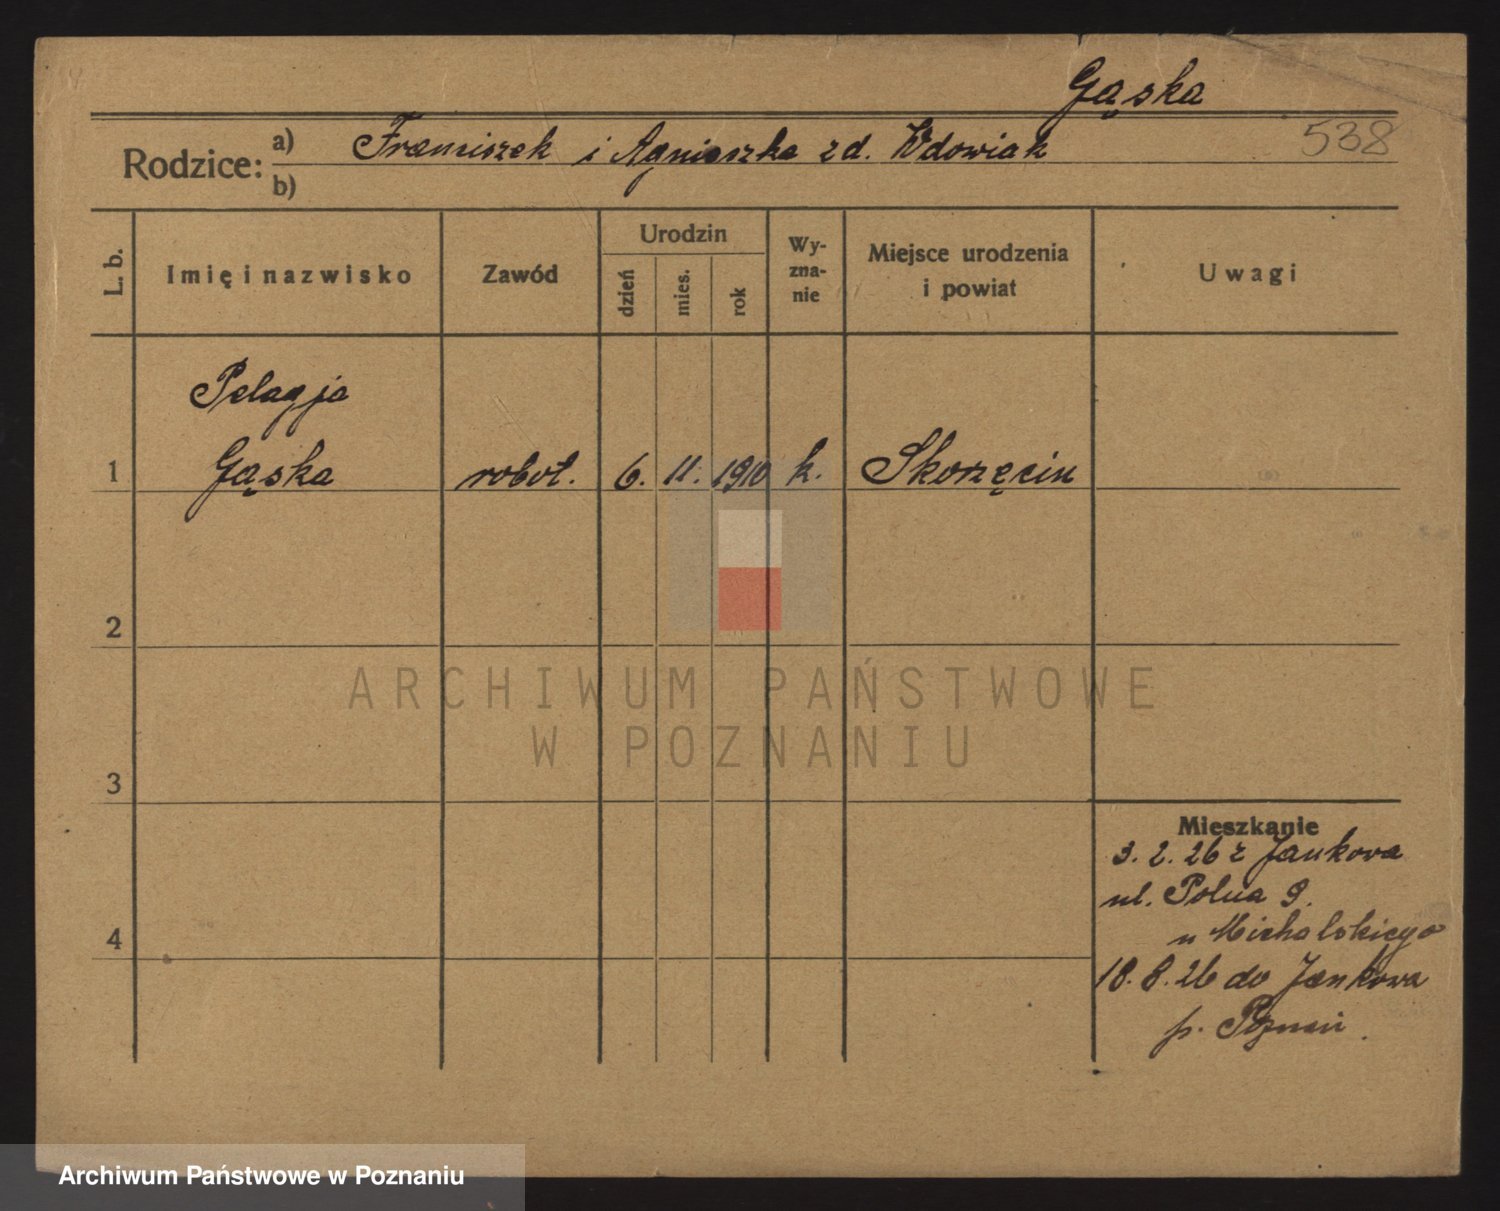 Gąska
538
Rodzice:
a) Franciszek i Agnieszka zd. Wdowiak
b)
L. b.
Imię i nazwisko
Zawód
Urodzin
dzień
mies.
rok
Wy-
zna-
nie
Miejsce urodzenia
i powiat
Uwagi
Pelagja
1 Gąska robot. 6. 11. 1910 k. Skorzęcin
2
ARCHIWUM PAŃSTWOWE
W POZNANIU
3
Mieszkanie
3. 2. 26 z Jankowa
ul. Polna 9.
4
u Michalskiego
18. 8. 26 do Jankowa
p. Poznań.
Archiwum Państwowe w Poznaniu